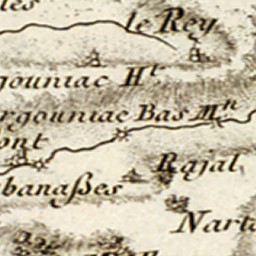 les
le Rey
gouniac Ht
rgouniac Bas Mn
ont
Rajal
banaßes
Nart